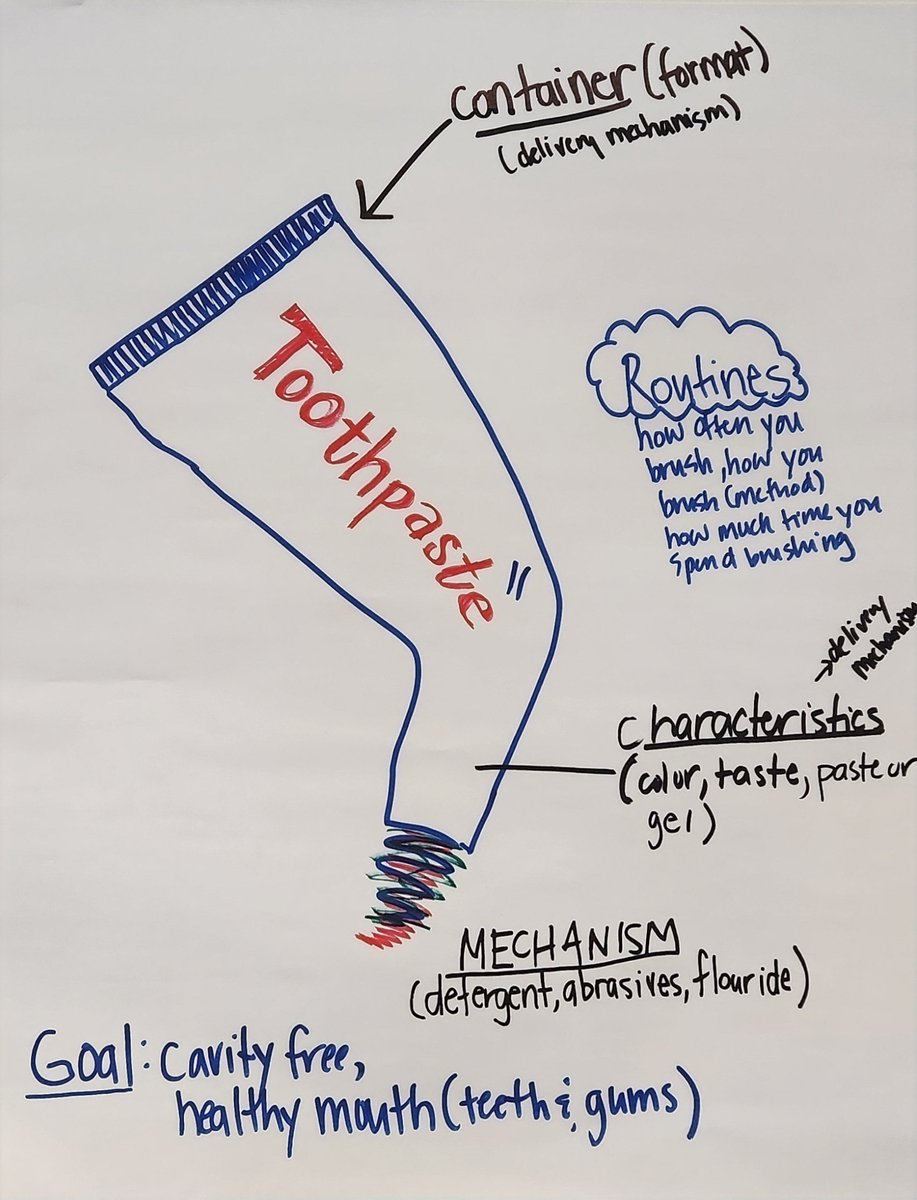 Container (format)
(delivery mechanism)
Toothpaste
Routines
how often you
brush, how you
brush (method)
how much time you
spend brushing
→delivery
mechanism
Characteristics
(color, taste, paste or
gel)
MECHANISM
(detergent, abrasives, flouride)
Goal: cavity free,
healthy mouth (teeth & gums)